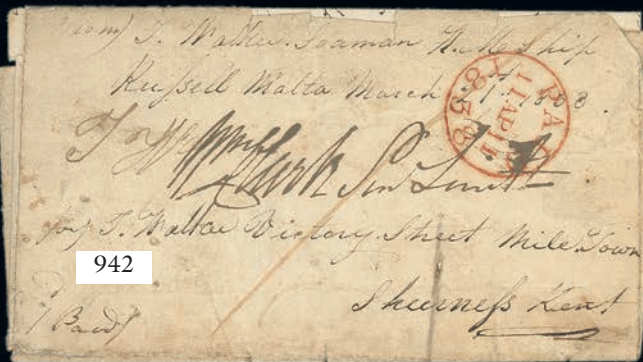 from) T. Walter Seaman H. M. Ship
Russell Malta March 17 1838.
PAID
11 AP 11
1838
1
Clark Sen Lieutt
for) T. Walter Victory Street Mile Town
942
Sheerness Kent